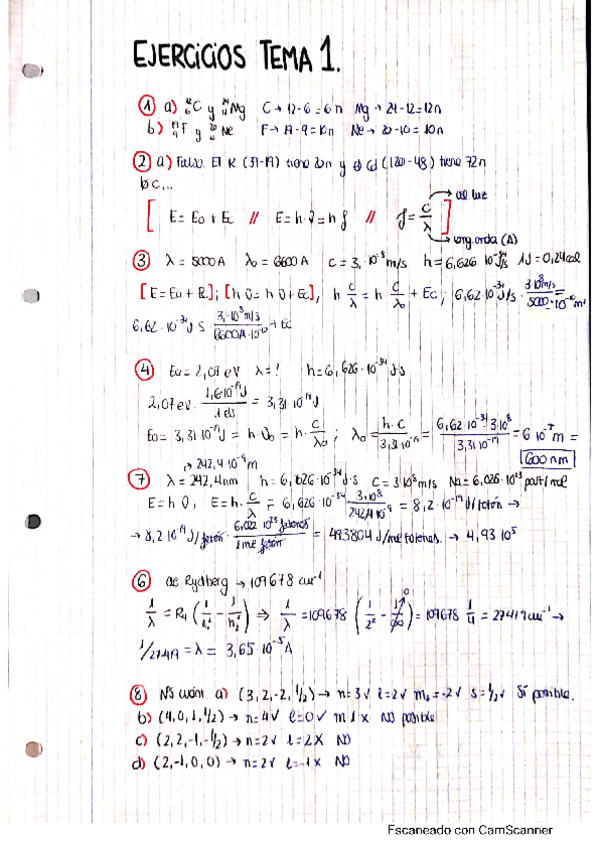 EJERCICIOS TEMA 1.
① a) ¹²₆C y ²⁴₁₂Mg C → 12-6 = 6n Mg → 24-12 = 12n
b) ¹⁹₉F y ²⁰₁₀Ne F → 19-9 = 10n Ne → 20-10 = 10n
② a) Falso. El K (39-19) tiene 20n y el Cd (120-48) tiene 72n
b c...
→ vel. luz
[ E = Eo + Ec // E = h·ν = h ƒ // ƒ = c/λ ]
→ long. onda (A)
③ λ = 5000 A λo = 6600 A c = 3·10⁸ m/s h = 6,626·10⁻³⁴ J/s 1J = 0,24 cal
[E = Eo + Ec]; [h ν = h ν + Ec], h c/λ = h c/λo + Ec; 6,62·10⁻³⁴ J/s · 3·10⁸ m/s / 5000·10⁻¹⁰ m =
6,62·10⁻³⁴ J S · 3·10⁸ m/s / 6600A·10⁻¹⁰ + Ec
④ Eo = 2,07 eV λ = ? h = 6,626·10⁻³⁴ J·s
2,07 eV · 1,6·10⁻¹⁹ J / 1 eV = 3,31·10⁻¹⁹ J
Eo = 3,31·10⁻¹⁹ J = h·νo = h·c/λo ; λo = h·c / 3,31·10⁻¹⁹ = 6,62·10⁻³⁴·3·10⁸ / 3,31·10⁻¹⁹ = 6·10⁻⁷ m =
600 nm
→ 242,4·10⁻⁹ m
⑦ λ = 242,4 nm h = 6,626·10⁻³⁴ J·s c = 3·10⁸ m/s Na = 6,026·10²³ part/mol
E = h ν, E = h·c/λ = 6,626·10⁻³⁴ · 3·10⁸ / 242,4·10⁻⁹ = 8,2·10⁻¹⁹ J/fotón →
→ 8,2·10⁻¹⁹ J/fotón · 6,022·10²³ fotones / 1 mol fotón = 493804 J/mol fotones. → 4,93·10⁵
⑥ de Rydberg → 109678 cm⁻¹
1/λ = RH (1/n₁² - 1/n₂²) ⇒ 1/λ = 109678 (1/2² - 1/∞) 0 = 109678 1/4 = 27419 cm⁻¹ →
1/27419 = λ = 3,65·10⁻⁵ A
⑧ Nºs cuán. a) (3, 2, -2, 1/2) → n=3 √ l=2 √ m=-2 √ s=1/2 √ Sí posible.
b) (4, 0, 1, 1/2) → n=4 √ l=0 √ m 1 x NO posible
c) (2, 2, -1, -1/2) → n=2 √ l=2 X NO
d) (2, -1, 0, 0) → n=2 √ l=-1 X NO
Escaneado con CamScanner